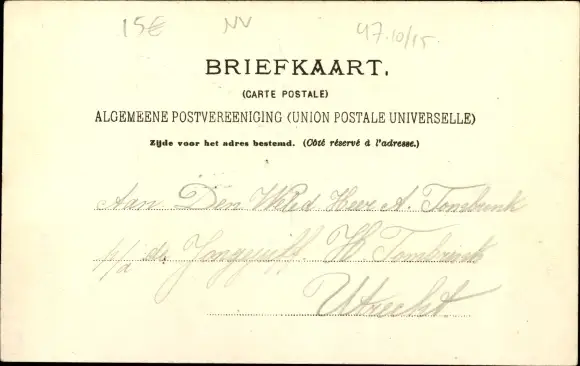 15€ NV 47.10/15
BRIEFKAART.
(CARTE POSTALE)
ALGEMEENE POSTVEREENIGING (UNION POSTALE UNIVERSELLE)
Zijde voor het adres bestemd. (Côté réservé à l'adresse.)
Aan Den Weled Heer A. Tombrink
p/a de H Tombrink
Utrecht.